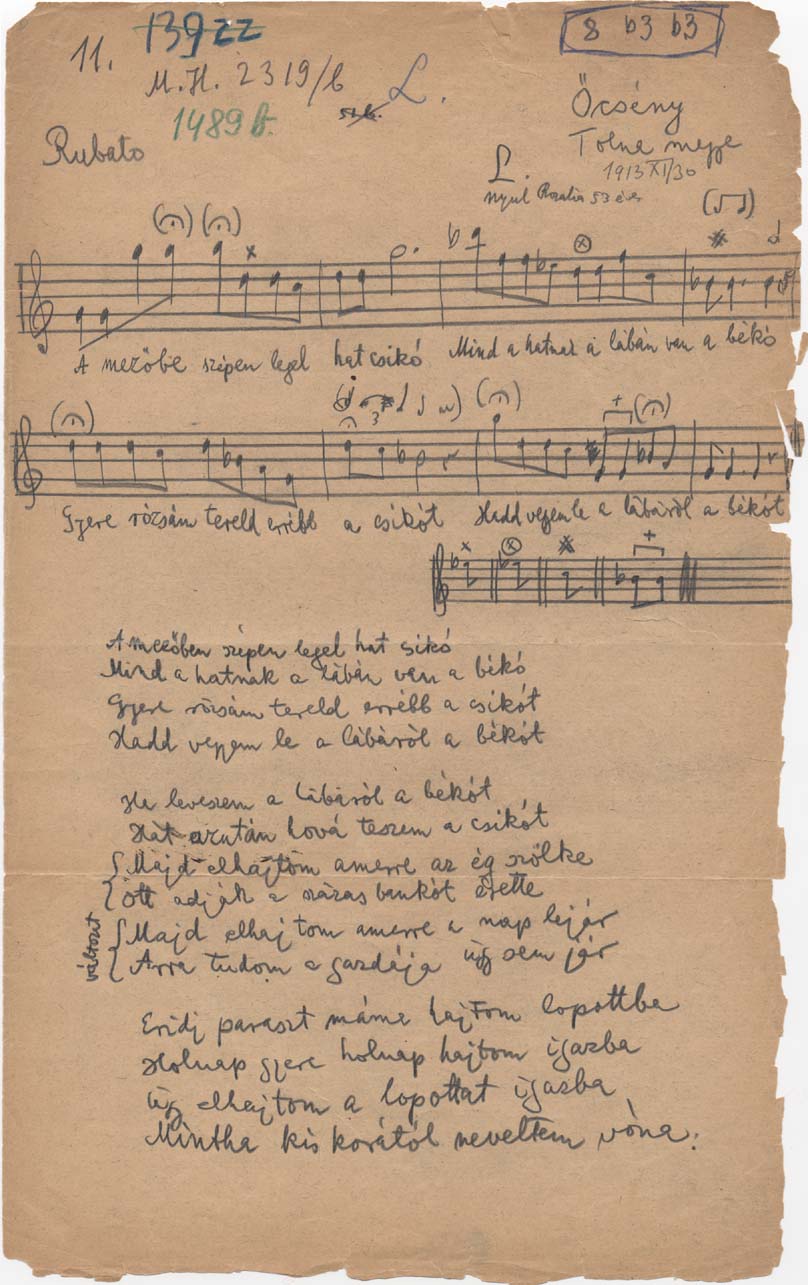 11. 139zz
8 b3 b3
M.H. 2319/b
L.
1489 b.
Rubato
Őcsény
Tolna megye
1913 XI/30
L.
Nyul Rozalia 53 éves
A mezőbe szépen legel hat csikó Mind a hatnak a lábán van a békó
Gyere rózsám tereld errébb a csikót Hadd vegyem le a lábáról a békót
A mezőben szépen legel hat csikó
Mind a hatnak a lábán van a békó
Gyere rózsám tereld errébb a csikót
Hadd vegyem le a lábáról a békót
Ha leveszem a lábáról a békót
Hát azután hová teszem a csikót
Majd elhajtom amerre az ég szőlke
Ott adják a százas bankót érette
változat
Majd elhajtom amerre a nap lejár
Arra tudom a gazdája úgy sem jár
Eridj paraszt máma hajtom lopottba
Holnap gyere holnap hajtom igazba
Úgy elhajtom a lopottat igazba
Mintha kis korától neveltem vóna.